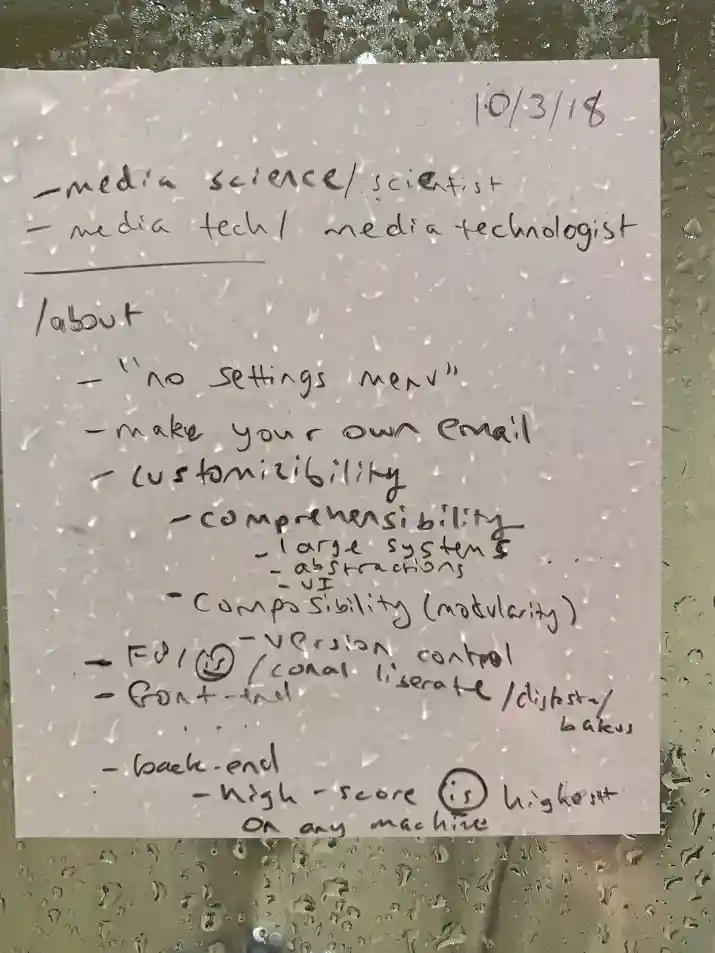 10/3/18
- media science/scientist
- media tech/ media technologist
/about
- "no settings menu"
- make your own email
- customizibility
- comprehensibility
- large systems
- abstractions
- UI
- composibility (modularity)
- version control
- /
- front-end
- back-end
- high-score is highest
on any machine